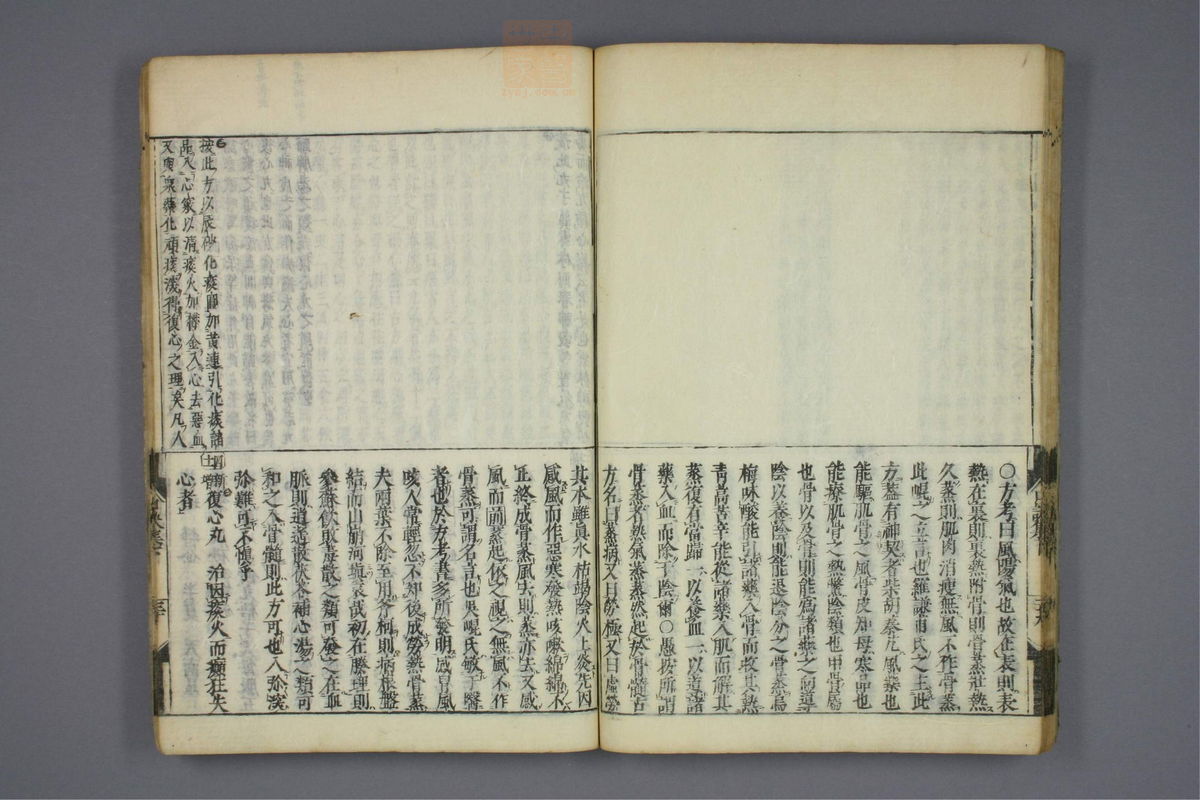 ○方考曰風陽氣也故在表則表
熱在裏則裏熱附骨則骨蒸壯熱
久蒸則肌肉消瘦無風不作骨蒸
此崐之立言也羅謙甫氏之主此
方蓋有神契者柴胡秦艽風藥也
能驅肌骨之風骨皮知母寒品也
能療肌骨之熱鱉陰類也甲骨屬
也骨以及骨則能為諸藥之向導
陰以養陰則能退陰分之骨蒸烏
梅味酸能引諸藥入骨而收其熱
青蒿苦辛能從諸藥入肌而解其
蒸復有當歸一以養血一以導諸
藥入血而除于陰爾○愚按所謂
骨蒸者熱氣蒸蒸然起於骨髓古
方名曰蒸病又曰勞極又曰虛勞
其本雖真水枯竭陰火上炎先因
感風而作惡寒發熱咳嗽綿綿不
止終成骨蒸風去則蒸亦去又感
風而前蒸起依之視之無風不作
骨蒸可謂名言也吳崐氏敏于醫
者也於方考書多所發明感冒風
咳人常輕忽不知後成勞熱骨蒸
夫兩葉不除至用斧柯則病根盤
結而山崩河坑哀哉初在腠理則
參蘇飲敗毒散之類可發之在血
脈則逍遙散茯苓補心湯之類可
和之入骨髓則此方可也入弥深
弥難可不慎乎
復心丸 治因痰火而癲狂失
心者
按此方以辰砂化痰圓加黃連引化痰諸
品入心竅以消痰火加欝金入心去惡血
又與眾藥化頑痰湊得復心之理矣凡人